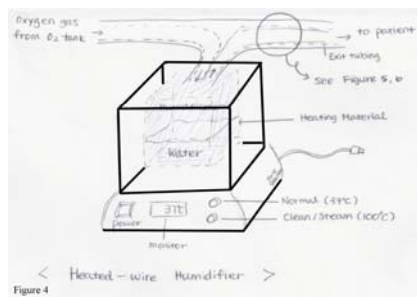 Oxygen gas
from O₂ tank
to patient
Exit tubing
See Figure 5, 6
Heating Material
Water
37℃
Normal (37℃)
Clean/Steam (100℃)
power
moniter
Figure 4
< Heated-wire Humidifier >